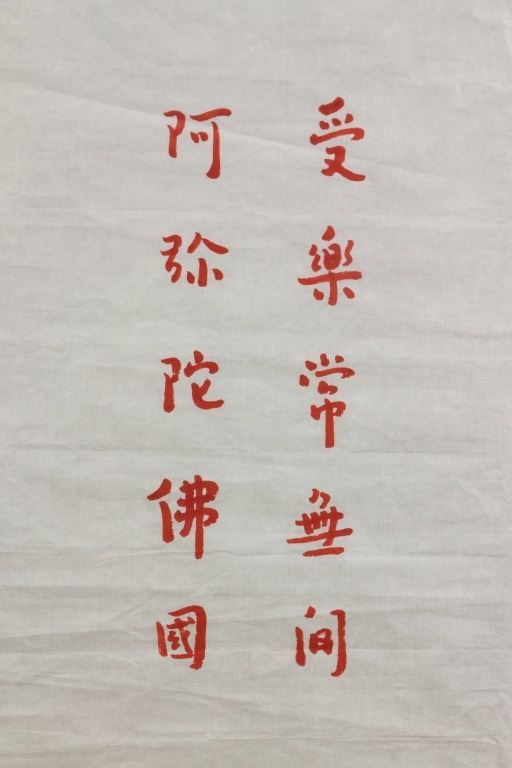 受樂常無间
阿弥陀佛國